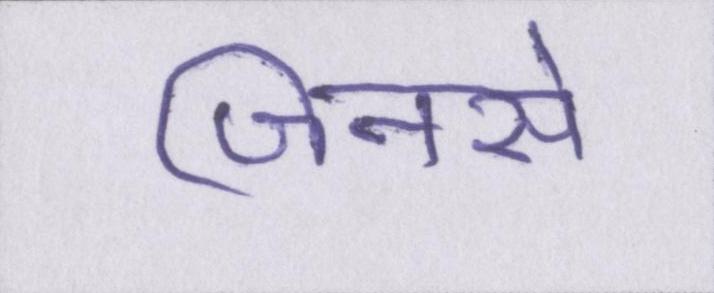 जिनसे